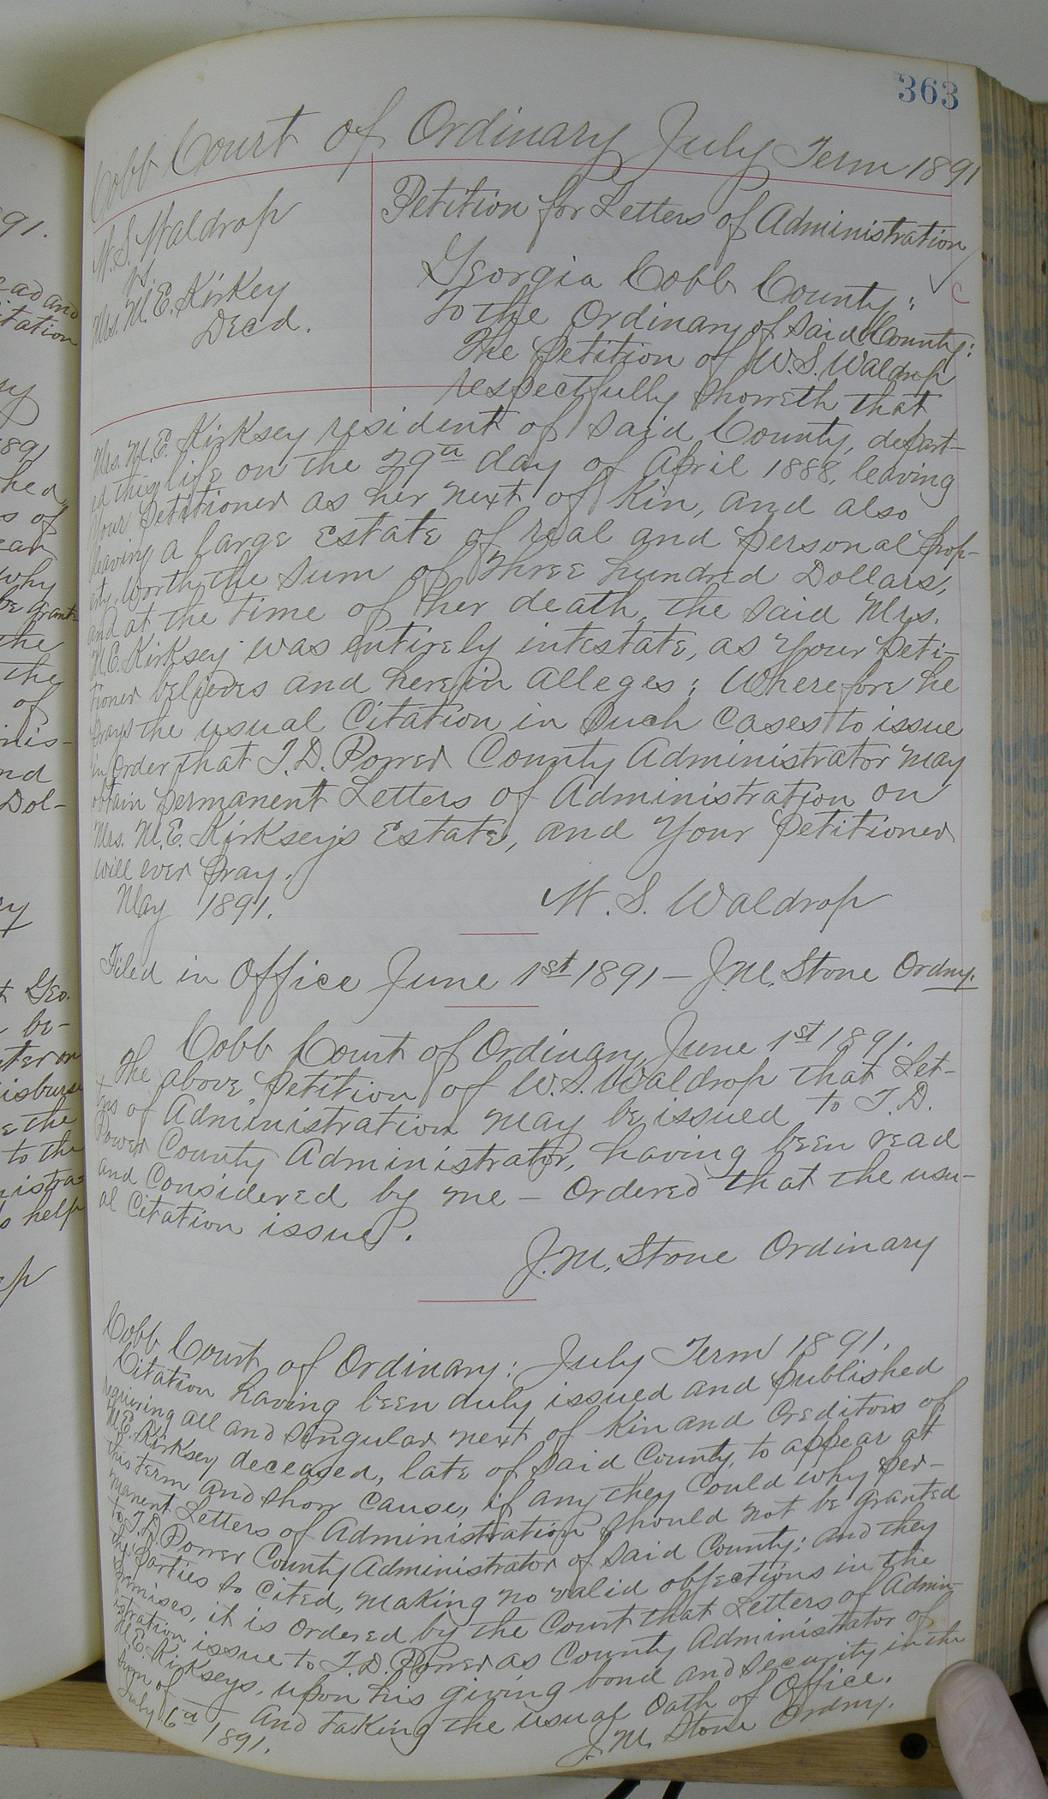 363
Cobb Court of Ordinary July Term 1891
W. S. Waldrop
vs.
Mrs. M. E. Kirkey
Decd.
Petition for Letters of Administration
Georgia Cobb County:
To the Ordinary of Said County:
The Petition of W. S. Waldrop
respectfully showeth that
Mrs. M. E. Kirksey resident of said County, depart-
ed this life on the 29th day of April 1888, leaving
Your Petitioner as her next of Kin, and also
leaving a large Estate of real and personal prop-
erty, worth the sum of three hundred Dollars,
and at the time of her death, the said Mrs.
M. E. Kirksey was entirely intestate, as Your Peti-
tioner believes and herein alleges; Wherefore he
prays the usual Citation in such Cases to issue
in order that T. D. Power County Administrator may
obtain permanent Letters of Administration on
Mrs. M. E. Kirksey's Estate, and Your Petitioner
will ever pray.
May 1891.
W. S. Waldrop
Filed in Office June 1st 1891 — J. M. Stone Ordny.
Cobb Court of Ordinary June 1st 1891.
The above Petition of W. S. Waldrop that Let-
ters of Administration may be issued to T. D.
Power County Administrator, having been read
and Considered by me — Ordered that the usu-
al Citation issue.
J. M. Stone Ordinary
Cobb Court of Ordinary: July Term 1891.
Citation having been duly issued and published
requiring all and singular next of kin and Creditors of
M. E. Kirksey deceased, late of said County, to appear at
this term and show cause, if any they Could why per-
manent Letters of Administration should not be granted
to T. D. Power County Administrator of said County; and they
the Parties so cited, making no valid objections in the
premises, it is ordered by the Court that Letters of Admin-
istration issue to T. D. Power as County Administrator of
M. E. Kirkseys, upon his giving bond and security in the
sum of — and taking the usual Oath of Office.
July 6th 1891.
J. M. Stone Ordny.